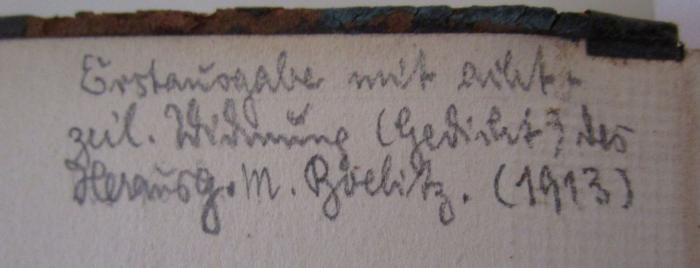 Erstausgabe mit acht-
zeil. Widmung (Gedicht) des
Herausg. M. Boelitz. (1913)